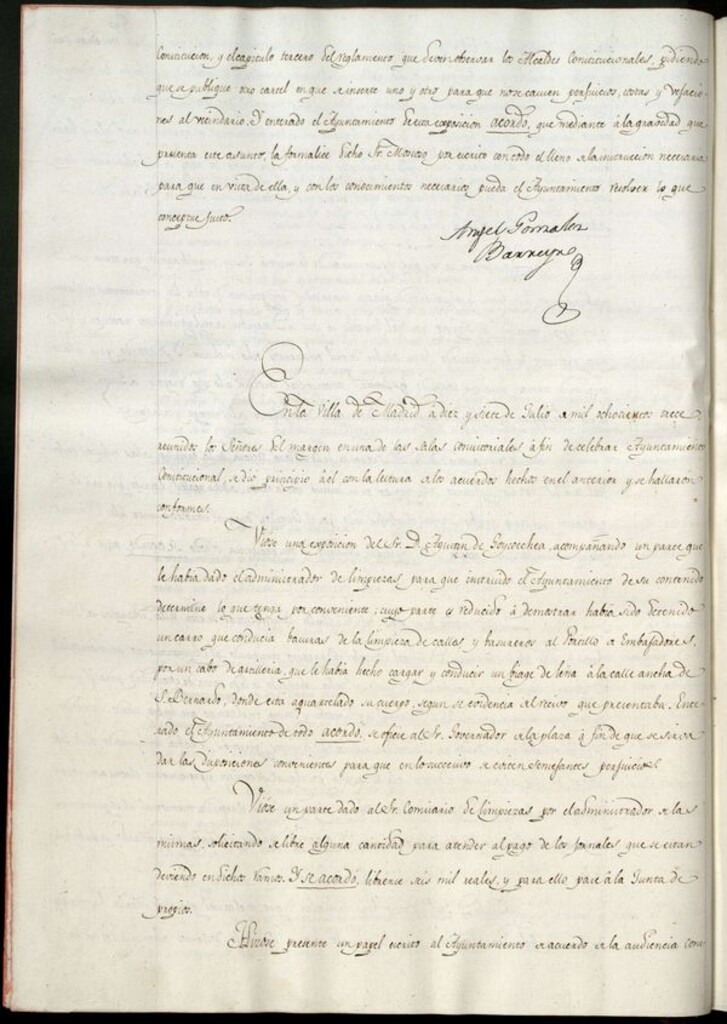 Constitucion, y el capitulo tercero del reglamento que deven observar los Alcaldes Constitucionales, pidiendo
que se publique otro cartel en que se inserte uno y otro para que no se causen perjuicios, costas y vejacio-
nes al vecindario. Y enterado el Ayuntamiento de esta exposicion acordó, que mediante á la gravedad que
presenta este asunto, la formalice dicho Sr. por escrito con todo el lleno de la instruccion necesaria
para que en vista de ella, y con los conocimientos necesarios pueda el Ayuntamiento resolver lo que
conceptue justo.
Angel Gonzalez
Barreyro
En la Villa de Madrid á diez y siete de Julio de mil ochocientos trece
reunidos los Señores del margen en una de las salas consistoriales á fin de celebrar Ayuntamiento
Constitucional, se dió principio á él con la lectura de los acuerdos hechos en el anterior y se hallaron
conformes.
Vióse una exposicion del Sr. D. Agustin de Goycoechea, acompañando un parte que
le habia dado el administrador de limpiezas para que instruido el Ayuntamiento de su contenido
determine lo que tenga por conveniente; cuyo parte es reducido á demostrar habia sido detenido
un carro que conducia basuras de la limpieza de calles y basureros al Portillo de Embajadores,
por un cabo de artilleria, que le habia hecho cargar y conducir un biage de leña á la calle ancha de
S. Bernardo, donde esta aquartelado su cuerpo, segun se evidencia al recivo que presentaba. Ente-
rado el Ayuntamiento de todo acordó, se oficie al Sr. Governador de la plaza á fin de que se sirva
dar las disposiciones convenientes para que en lo succesivo se eviten semejantes perjuicios.
Vióse un parte dado al Sr. Comisario de limpiezas por el administrador de las
mismas, solicitando se libre alguna cantidad para atender al pago de los jornales que se estan
deviendo en dichos ramos. Y se acordó, librense seis mil reales, y para ello pase á la Junta de
propios.
Hizose presente un papel escrito al Ayuntamiento de acuerdo de la audiencia cons-